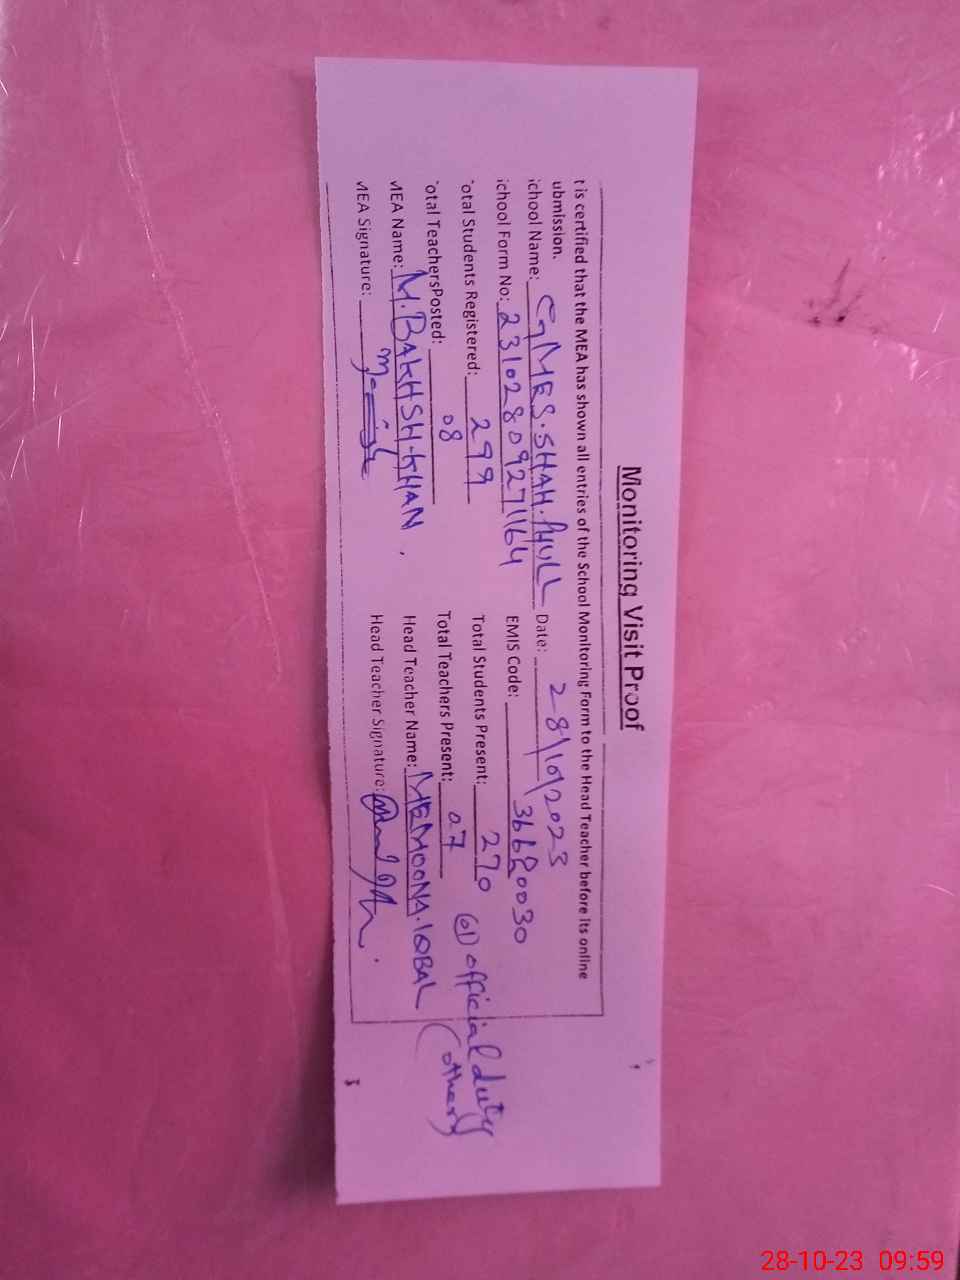 Monitoring Visit Proof
t is certified that the MEA has shown all entries of the School Monitoring Form to the Head Teacher before its online
ubmission.
ichool Name: GMES.SHAH.PHULL Date: 28/10/2023
ichool Form No: 23102809271164 EMIS Code: 36620030
otal Students Registered: 299 Total Students Present: 270
otal TeachersPosted: 08 Total Teachers Present: 07 (01) official duty
MEA Name: M.BAKHSH.KHAN Head Teacher Name: MEMOONA.IQBAL (other)
MEA Signature: Head Teacher Signature:
28-10-23 09:59